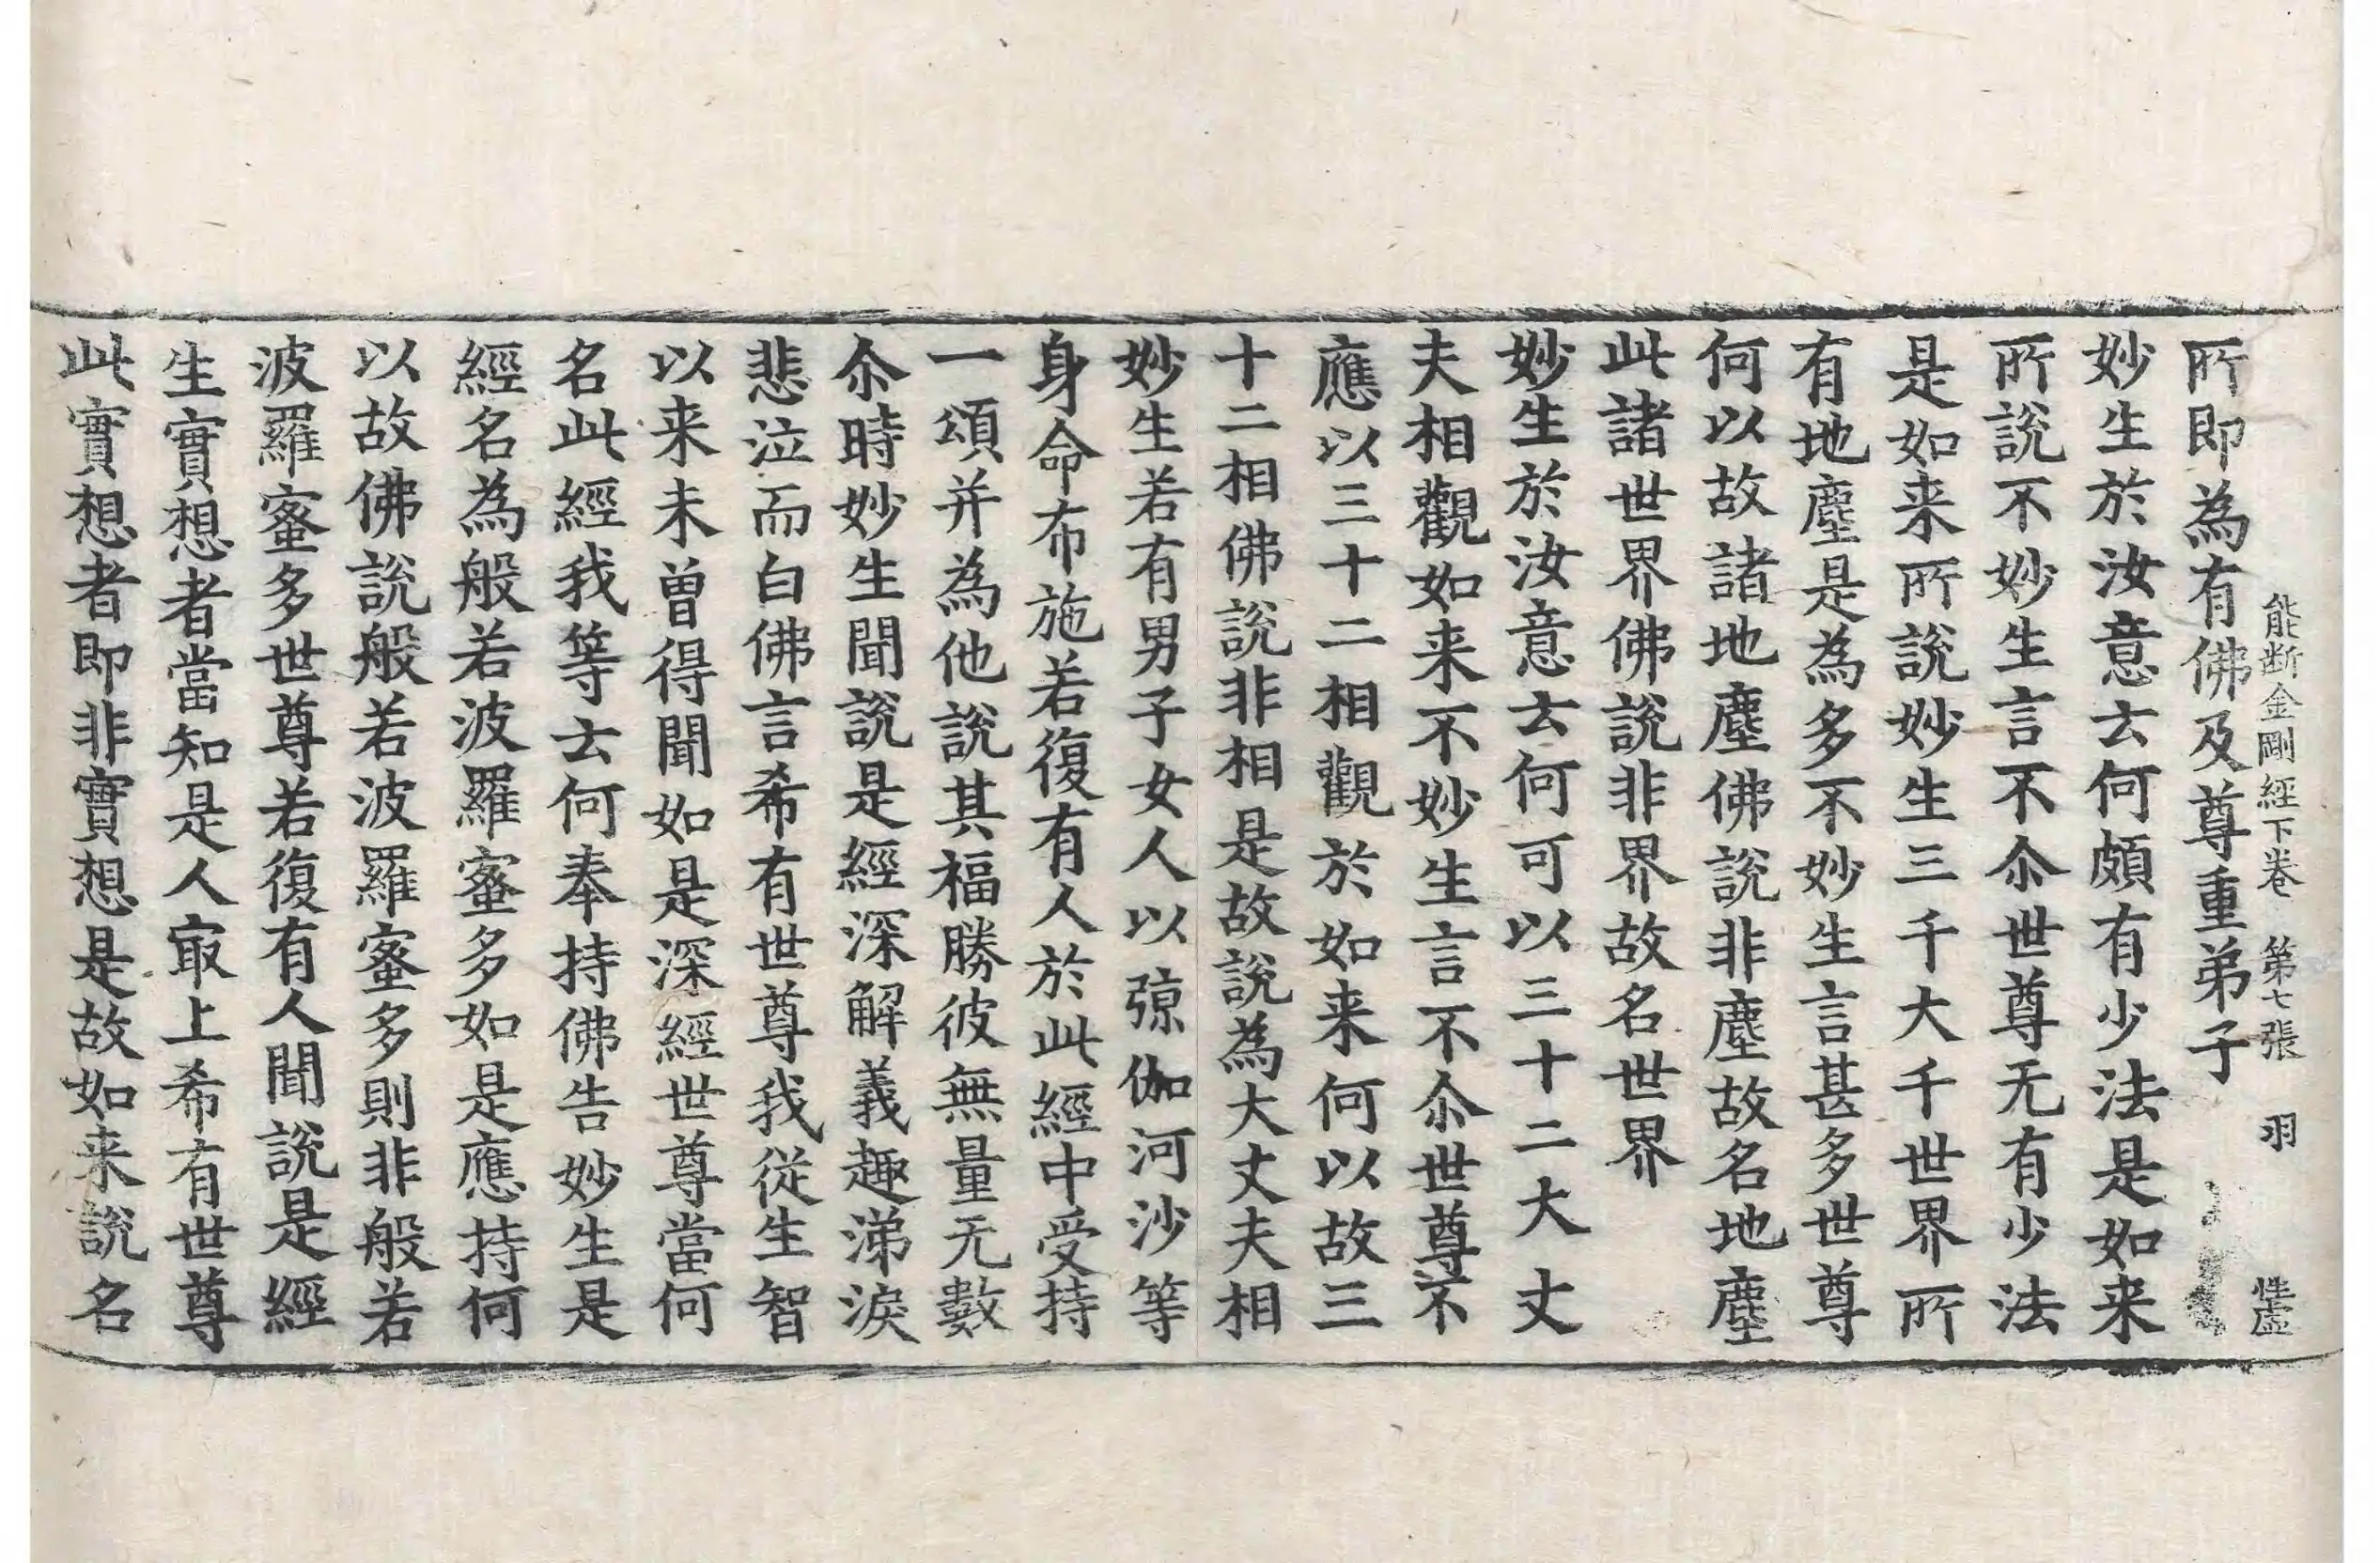 能断金剛經下卷 第七張 羽 性虛
所即為有佛及尊重弟子
妙生於汝意云何頗有少法是如来
所說不妙生言不尒世尊无有少法
是如来所說妙生三千大千世界所
有地塵是為多不妙生言甚多世尊
何以故諸地塵佛說非塵故名地塵
此諸世界佛說非界故名世界
妙生於汝意云何可以三十二大丈
夫相觀如来不妙生言不尒世尊不
應以三十二相觀於如来何以故三
十二相佛說非相是故說為大丈夫相
妙生若有男子女人以弶伽河沙等
身命布施若復有人於此經中受持
一頌并為他說其福勝彼無量无數
尒時妙生聞說是經深解義趣涕淚
悲泣而白佛言希有世尊我從生智
以来未曾得聞如是深經世尊當何
名此經我等云何奉持佛告妙生是
經名為般若波羅蜜多如是應持何
以故佛說般若波羅蜜多則非般若
波羅蜜多世尊若復有人聞說是經
生實想者當知是人㝡上希有世尊
此實想者即非實想是故如来說名